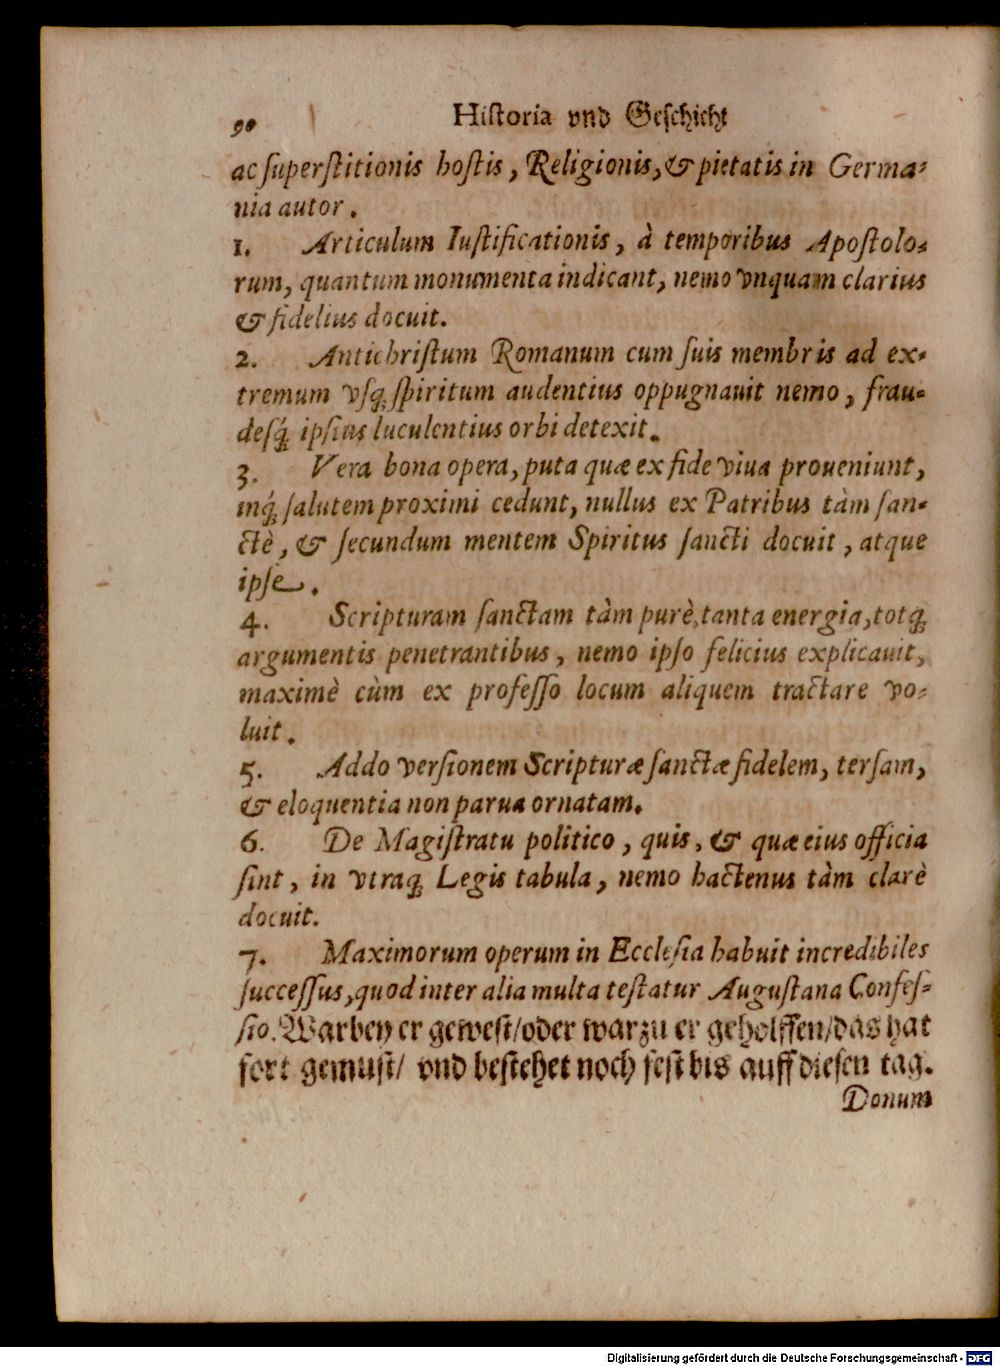 90 Historia vnd Geschicht
ac superstitionis hostis, Religionis, & pietatis in Germa-
nia autor.
1. Articulum Iustificationis, à temporibus Apostolo-
rum, quantum monumenta indicant, nemo vnquam clarius
& fidelius docuit.
2. Antichristum Romanum cum suis membris ad ex-
tremum vsq́; spiritum audentius oppugnauit nemo, frau-
desq́; ipsius luculentius orbi detexit.
3. Vera bona opera, puta quæ ex fide viua proueniunt,
inq́; salutem proximi cedunt, nullus ex Patribus tàm san-
ctè, & secundum mentem Spiritus sancti docuit, atque
ipse.
4. Scripturam sanctam tàm purè, tanta energia, totq́;
argumentis penetrantibus, nemo ipso felicius explicauit,
maximè cùm ex professo locum aliquem tractare vo-
luit.
5. Addo versionem Scripturæ sanctæ fidelem, tersam,
& eloquentia non parua ornatam.
6. De Magistratu politico, quis, & quæ eius officia
sint, in vtraq́; Legis tabula, nemo hactenus tàm clarè
docuit.
7. Maximorum operum in Ecclesia habuit incredibiles
successus, quod inter alia multa testatur Augustana Confes-
sio. Warbey er gewest/ oder warzu er geholffen/ das hat
fort gemust/ vnd bestehet noch fest bis auff diesen tag.
Donum
Digitalisierung gefördert durch die Deutsche Forschungsgemeinschaft - DFG